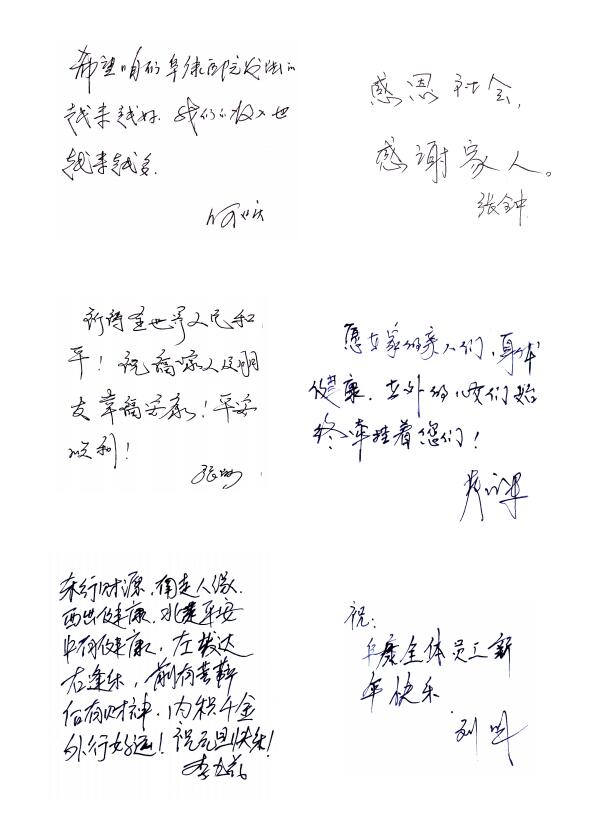 希望咱们阜康医院发出的
越来越好.我们的收入也
越来越多.
感恩社会,
感谢家人。
张钟
祈祷全世界人民和
平!祝福家人及朋
友幸福安康!平安
顺利!
张
愿在家的亲人们,身体
健康.在外的心他们始
终牵挂着您们!
东行财源,南走人缘.
西出健康.北走平安
中有健康,左发达
右逢乐,前有普
后有财神.内积千金
外行好运!祝元旦快乐!
李
祝:
阜康全体员工新
年快乐
刘